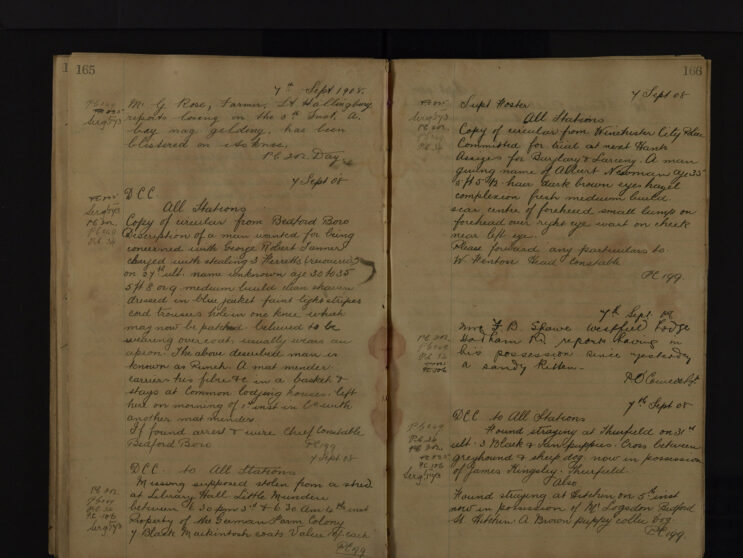 165
7th Sept 1908.
Mr G. Rose, Farmer, Lt Hallingbury
reports losing on the 5th Inst, A.
bay nag gelding, has been
blistered on its knee.
PC 202. Day
7 Sept 08
DCC.
All Stations
Copy of circular from Bedford Boro
Discription of a man wanted for being
concerned with George Robert Tanner
charged with stealing 3 Ferretts (recovered)
on 27th ult. name unknown age 30 to 35
5 ft 8 or 9 medium build clean shaven
dressed in blue jacket faint light stripes
cord trousers hole in one knee which
may now be patched believed to be
wearing overcoat, usually wears an
apron. The above described man is
known as Punch. A mat mender
carries his fibre &c in a basket &
stays at Common lodging houses. left
here on morning of 1st inst in Co with
another mat mender
If found arrest & wire Chief Constable
Bedford Boro
PC 199
7 Sept 08
DCC. to All Stations
Missing supposed stolen from a shed
at Library Hall Little Munden
between 6.30 pm 3rd & 6.30 Am 4th inst
Property of the German Farm Colony
7 Black Mackintosh coats Value of each
PC 199
166
7 Sept 08
Supt Foster
All Stations
Copy of circular from Winchester City Police
Committed for trial at next Hants
Assizes for Burglary & Larceny. A man
giving name of Albert Newman age 35
5 ft 5½ hair dark brown eyes hazel
complexion fresh medium build.
scar centre of forehead small lump on
forehead over right eye wart on cheek
near left eye
Please forward any particulars to
W. Henton Head Constable.
PC 199.
7th Sept. 08
Mr F B Westfield Lodge
Rd reports having in
his possession since yesterday
a sandy Kitten.
7th Sept 08
DCC to All Stations
Found straying at Therfield on 31st
ult. 3 Black & Tan puppies. Cross between
greyhound & sheep dog now in possession
of James Kingsley. Therfield.
Also
Found straying at Hitchin on 5th inst
now in possession of Mr Logsdon Bedford
St. Hitchin. A Brown puppy collie dog
PC 199